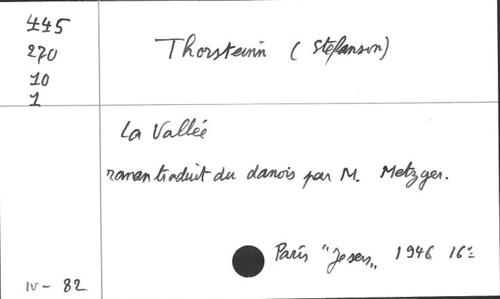 445
270
10
1
Thorsteinn (Stefanson)
La Vallée
roman traduit du danois par M. Metzger.
Paris "Jesers" 1946 16º
IV - 82